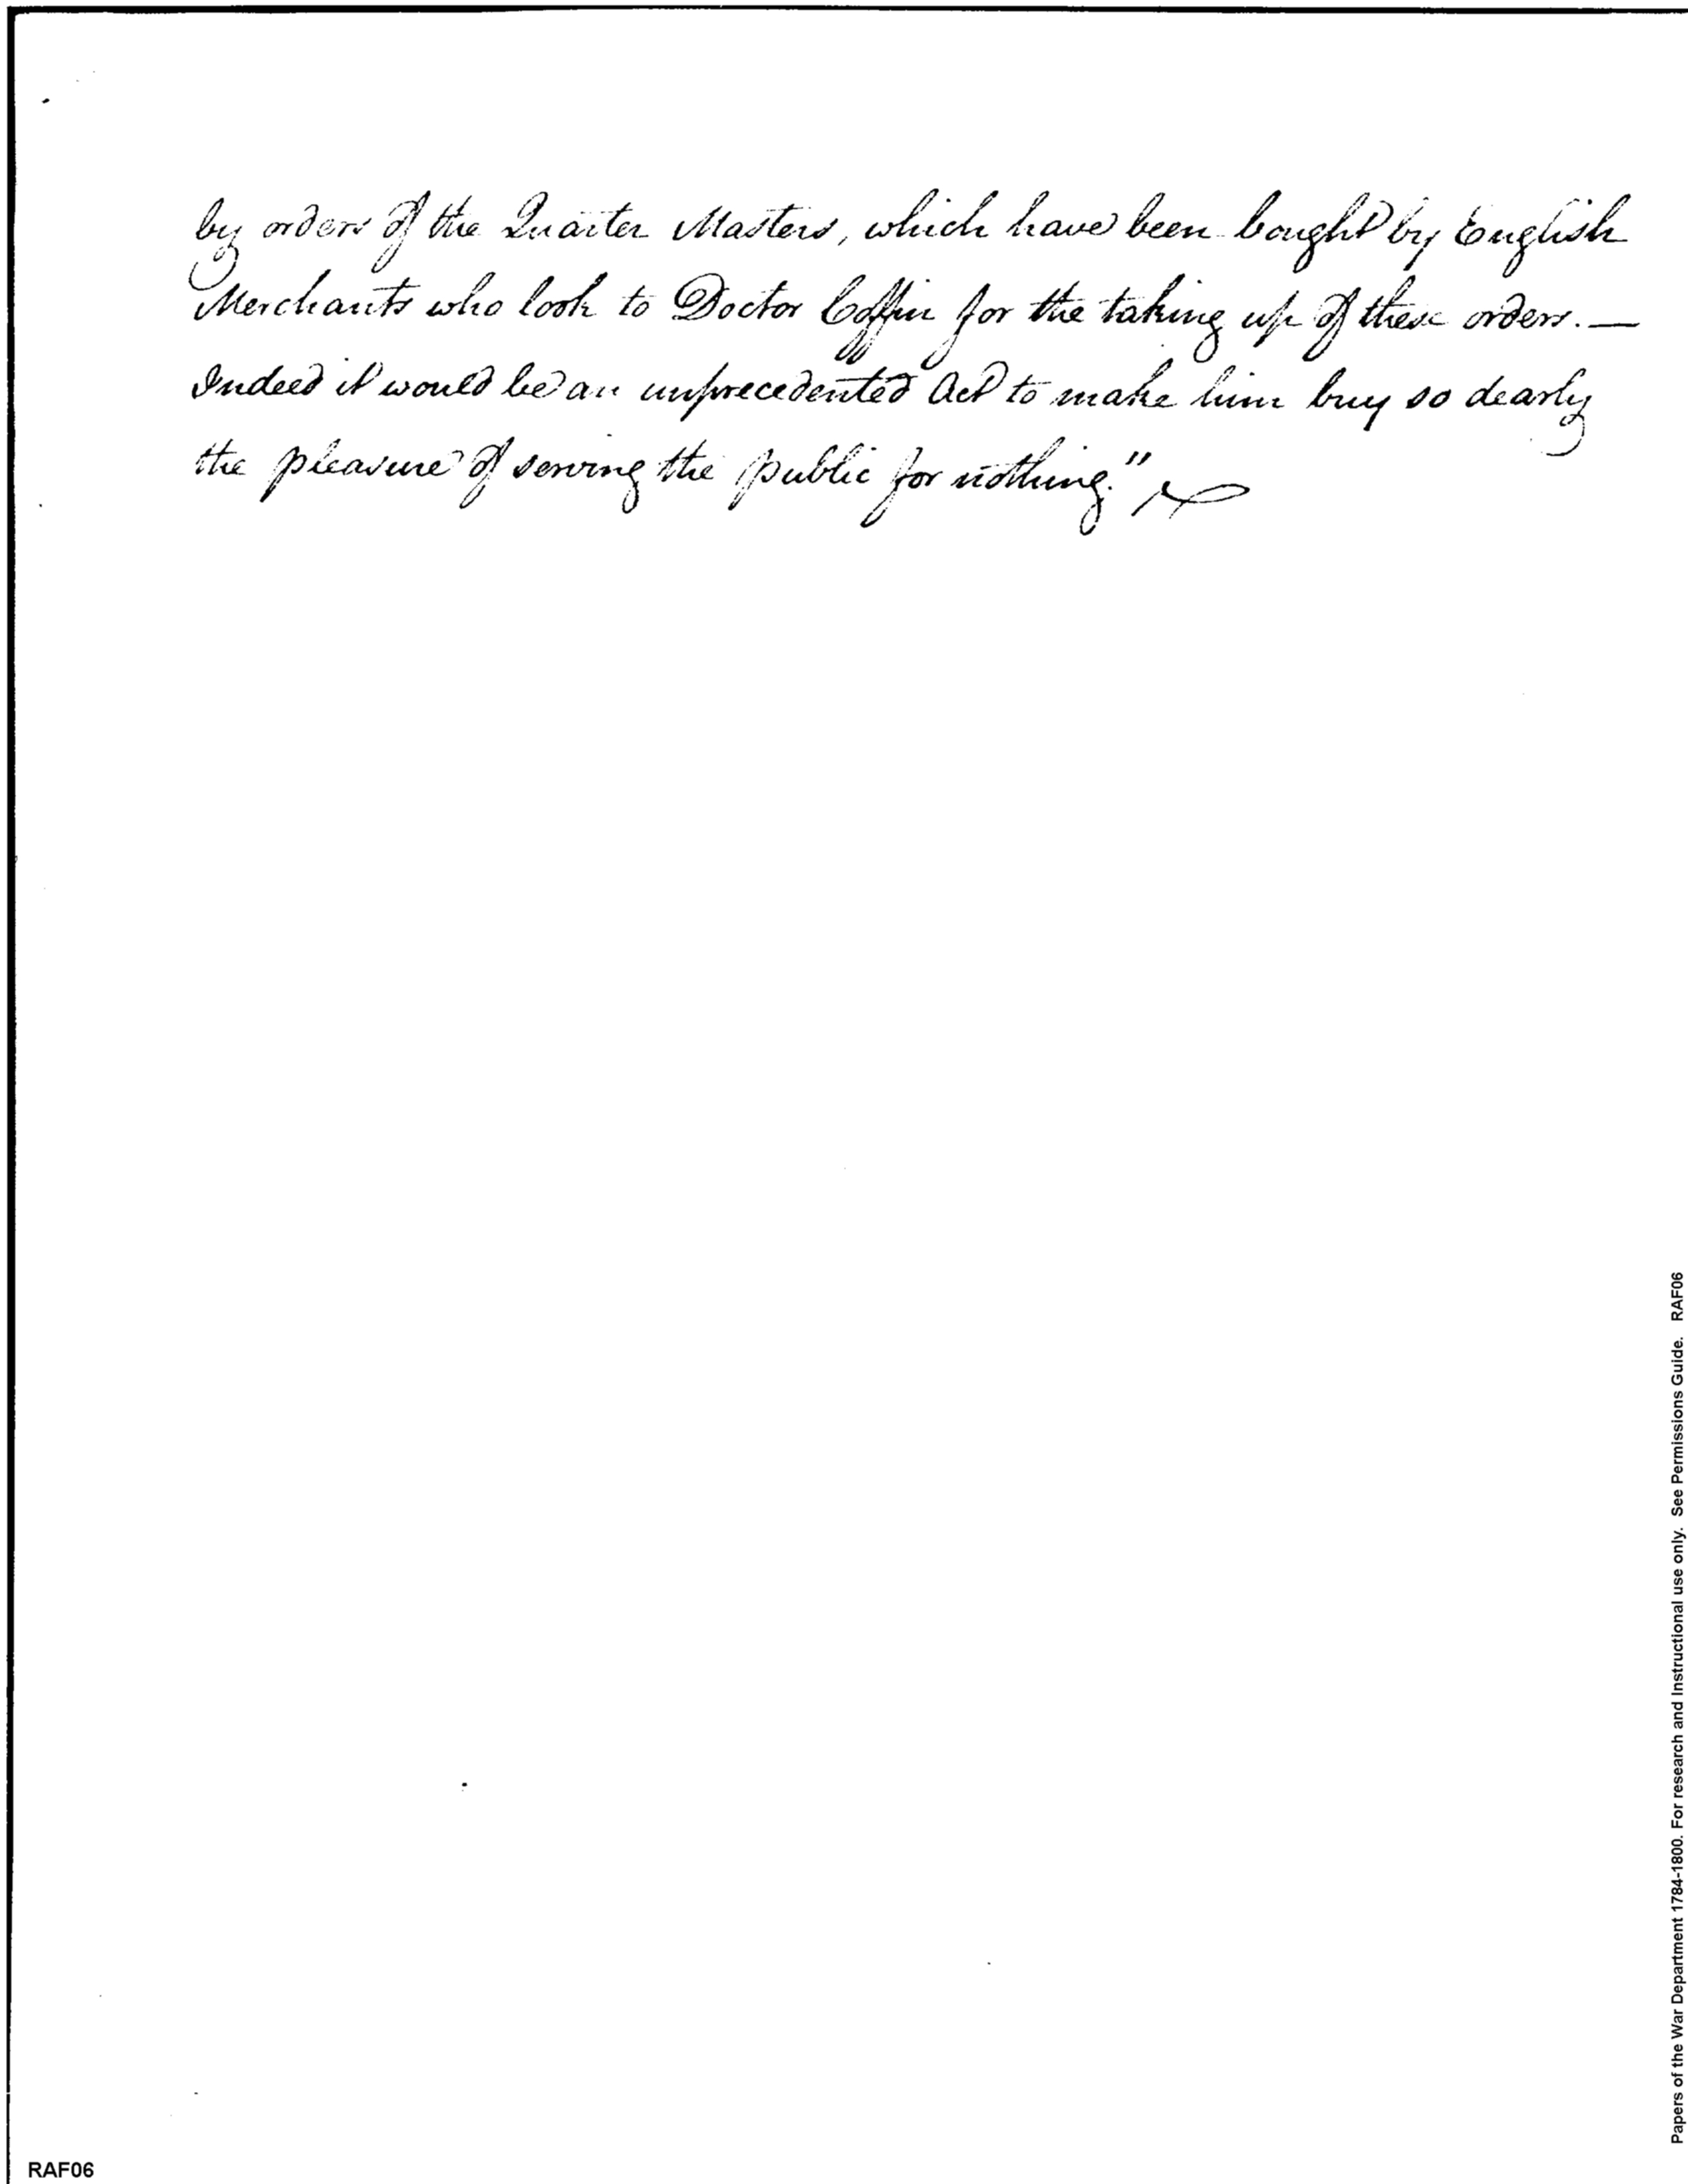 by orders of the Quarter Masters, which have been bought by English
Merchants who look to Doctor Coffin for the taking up of these orders. —
Indeed it would be an unprecedented Act to make him buy so dearly
the pleasure of serving the public for nothing."
Papers of the War Department 1784-1800. For research and Instructional use only. See Permissions Guide. RAF06
RAF06